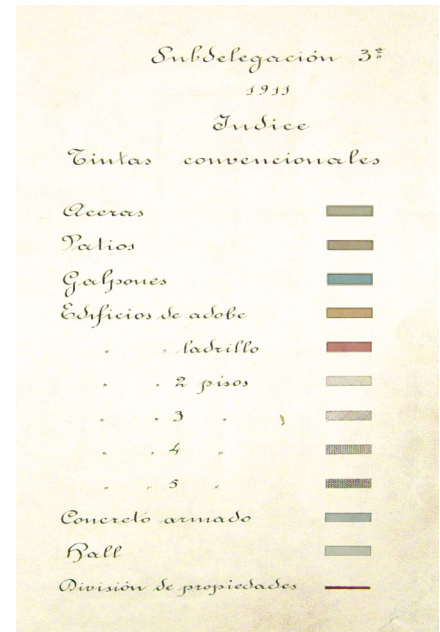 Subdelegación 3ª
1911
Indice
Tintas convencionales
Aceras
Patios
Galpones
Edificios de adobe
" " ladrillo
" " 2 pisos
" " 3 "
" " 4 "
" " 5 "
Concreto armado
Hall
División de propiedades